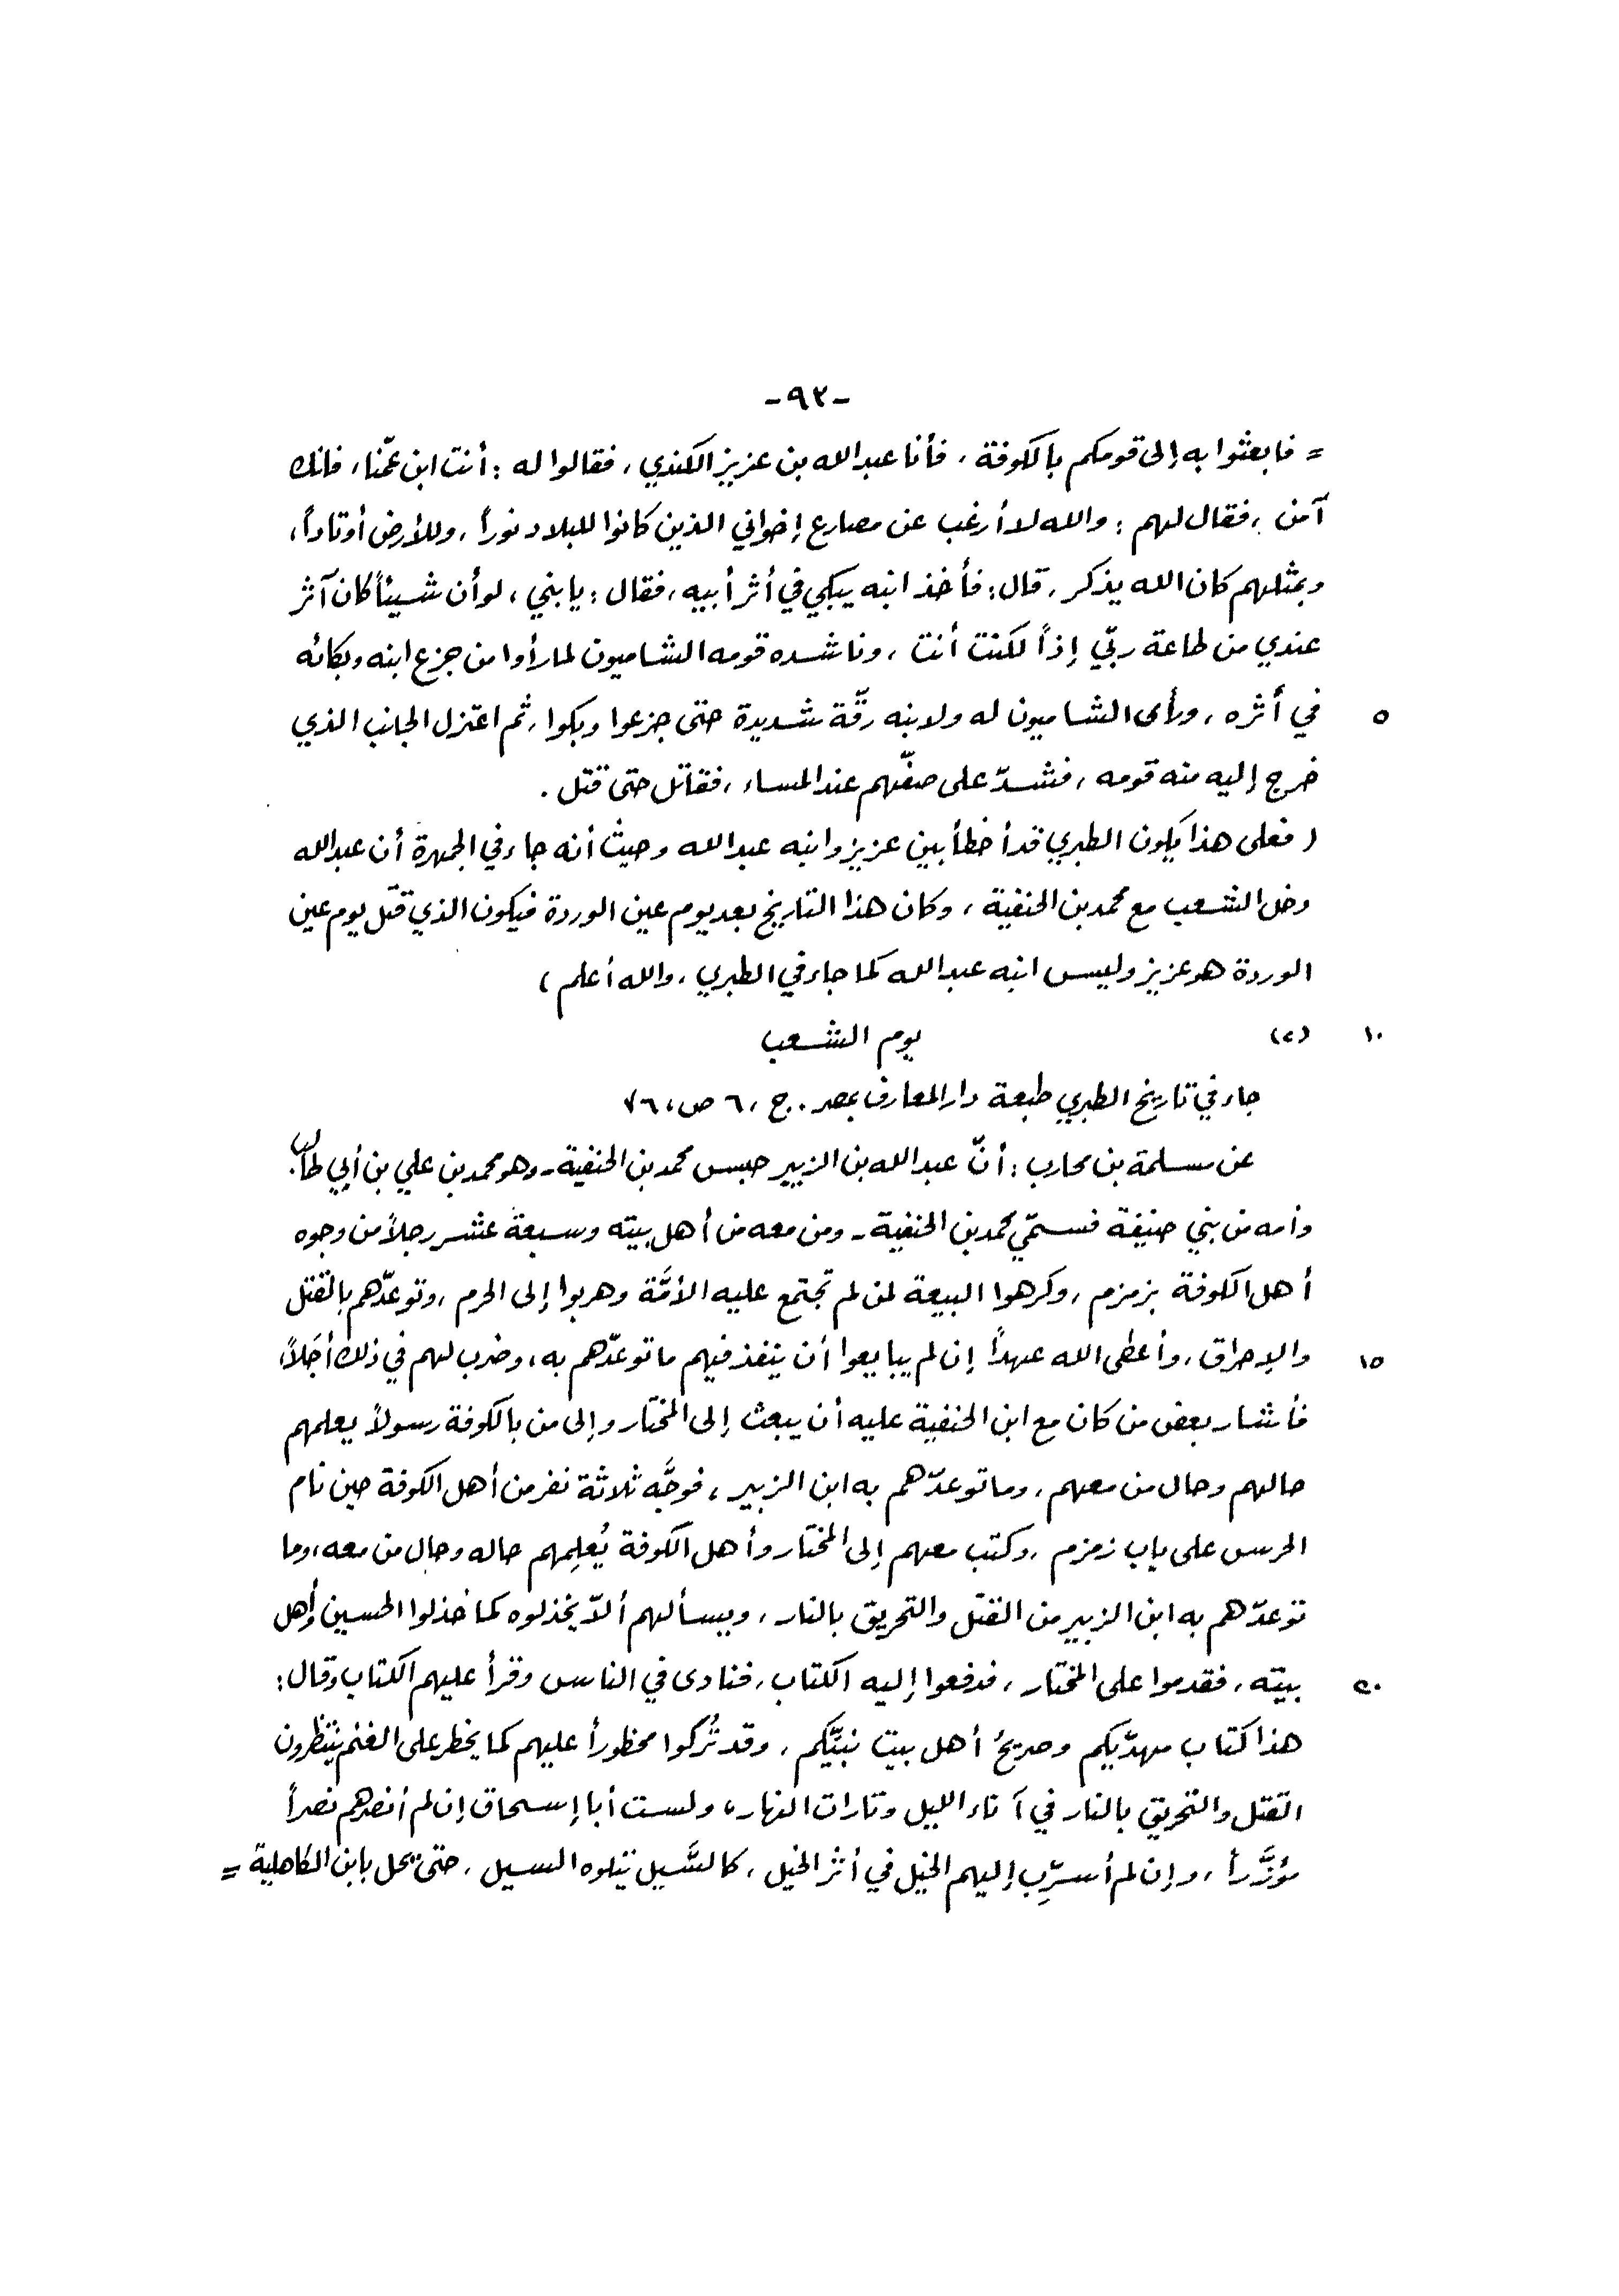 -٩٢-
= فابعثوا به إلى قومكم بالكوفة، فأنا عبدالله بن عزيز الكندي، فقالوا له: أنت ابن عمّنا، فانك
آمن، فقال لهم: والله لا أرغب عن مصارع إخواني الذين كانوا للبلاد نوراً، وللأرض أوتاداً،
وبمثلهم كان الله يذكر، قال: فأخذ ابنه يبكي في أثر أبيه، فقال: يا بني، لو أن شيئاً كان آثر
عندي من طاعة ربّي إذاً لكنت أنت، وناشده قومه الشاميون لما رأوا من جزع ابنه وبكائه
٥ في أثره، ورأى الشاميون له ولابنه رقّة شديدة حتى جزعوا وبكوا، ثم اعتزل الجانب الذي
خرج إليه منه قومه، فشدّ على صفّهم عند المساء، فقاتل حتى قتل.
( فعلى هذا يكون الطبري قد أخطأ بين عزيز وابنه عبدالله وحيث أنه جاء في الجمهرة أن عبدالله
دخل الشعب مع محمد بن الحنفية، وكان هذا التاريخ بعد يوم عين الوردة فيكون الذي قتل يوم عين
الوردة هو عزيز وليس ابنه عبدالله كما جاء في الطبري، والله أعلم )
١٠ (٢) يوم الشعب
جاء في تاريخ الطبري طبعة دار المعارف بمصر. ج، ٦ ص، ٧٦
عن مسلمة بن محارب: أنّ عبدالله بن الزبير حبس محمد بن الحنفية - وهو محمد بن علي بن أبي طالب.
وأمه من بني حنيفة فسمّي محمد بن الحنفية - ومن معه من أهل بيته وسبعة عشر رجلاً من وجوه
أهل الكوفة بزمزم، وكرهوا البيعة لمن لم تجتمع عليه الأمَّة وهربوا إلى الحرم، وتوعدّهم بالقتل
١٥ والإحراق، وأعطى الله عهداً إن لم يبايعوا أن ينفذ فيهم ما توعدّهم به، وضرب لهم في ذلك أجَلاً،
فأشار بعض من كان مع ابن الحنفية عليه أن يبعث إلى المختار وإلى من بالكوفة رسولاً يعلمهم
حالهم وحال من معهم، وما توعدّهم به ابن الزبير، فوجَّه ثلاثة نفر من أهل الكوفة حين نام
الحرس على باب زمزم، وكتب معهم إلى المختار وأهل الكوفة يُعلِمهم حاله وحال من معه، وما
توعدّهم به ابن الزبير من القتل والتحريق بالنار، ويسألهم ألاّ يخذلوه كما خذلوا الحسين وأهل
٢٠ بيته، فقدموا على المختار، فدفعوا إليه الكتاب، فنادى في الناس وقرأ عليهم الكتاب وقال:
هذا كتاب مهديّكم وصريحُ أهل بيت نبيّكم، وقد تُركوا محظوراً عليهم كما يحظر على الغنم ينتظرون
القتل والتحريق بالنار في آناء الليل وتارات النهار، ولست أبا إسحاق إن لم أنصرهم نصراً
مؤزَّراً، وإن لم أسرِّب إليهم الخيل في أثر الخيل، كالسَّيل يتلوه السيل، حتى يحل بابن الكاهلية =